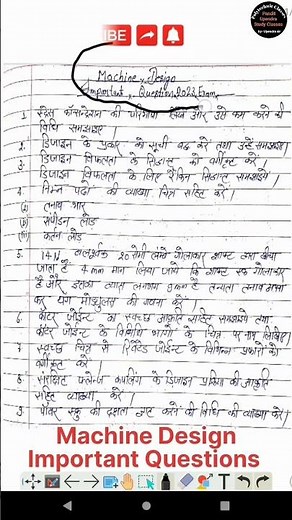 Polytechnic Classes
Pundit
Upendra
Study Classes
By- Upendra sir
IBE
Machine Design
Important Question 2022 Exam
1. स्ट्रेस कंसन्ट्रेशन की परिभाषा लिखें और उसे कम करने की
विधि समझाइए।
2. डिजाइन के प्रकार को सूची बद्ध करें तथा उन्हें समझाइए।
3. डिजाइन विफलता के सिद्धांत को वर्णित करें।
डिजाइन विफलता के लिए रैंकिन सिद्धांत समझाइये।
4. निम्न पदों की व्याख्या चित्र सहित करें।
(i) तनाव भार
(ii) संपीडन लोड
(iii) कतन लोड
5. 20 सेमी लंबे गोलाकार
जाता है 4 mm मान लिया जाये कि शाफ्ट गोलाकार
है और इसका व्यास लगभग mm है
कर यंग मोड्युलस की गणना करें।
6. कॉटर जोईन्ट का स्वच्छ आकृति सहित समझाये तथा
कॉटर जोईन्ट के विभिन्न भागों के चित्र पर नाम लिखिए।
7. स्वच्छ चित्र से रिवेटेड जोईन्ट के विभिन्न प्रकारों को
वर्गीकृत करें।
8. फ्लेन्ज कपलिंग के डिजाइन प्रक्रिया की आकृति
सहित व्याख्या करें।
9. पॉवर स्क्रू की दक्षता ज्ञात करने की विधि की व्याख्या करें।
Machine Design
Important Questions